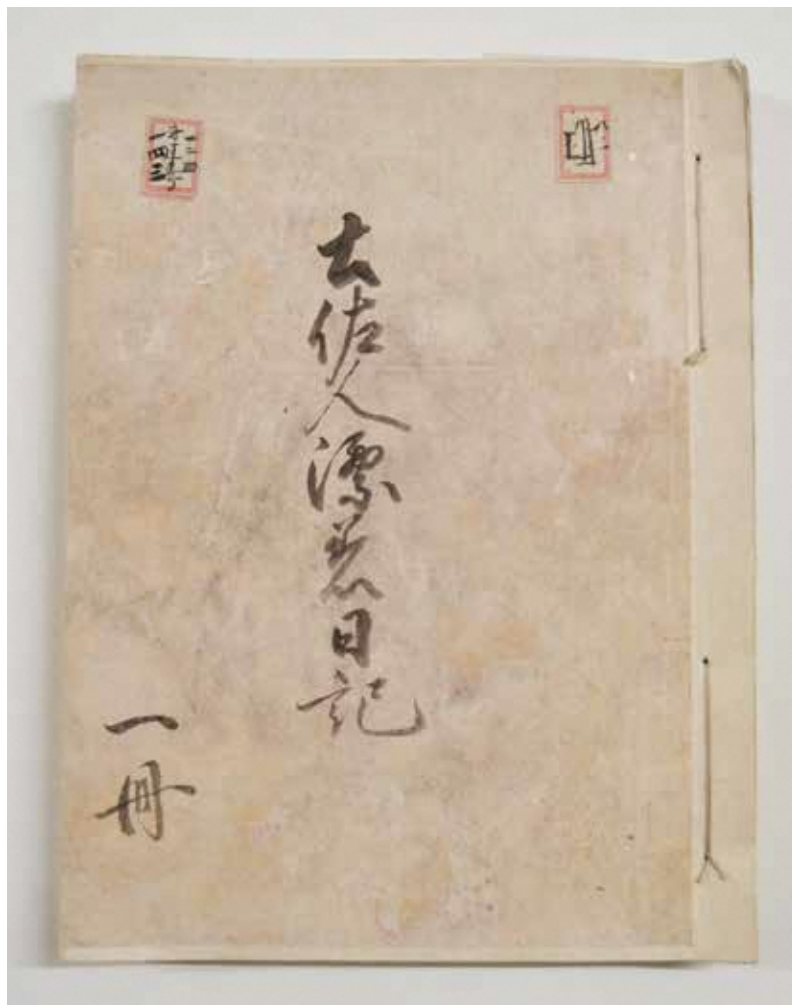 土佐人漂着日記
一冊